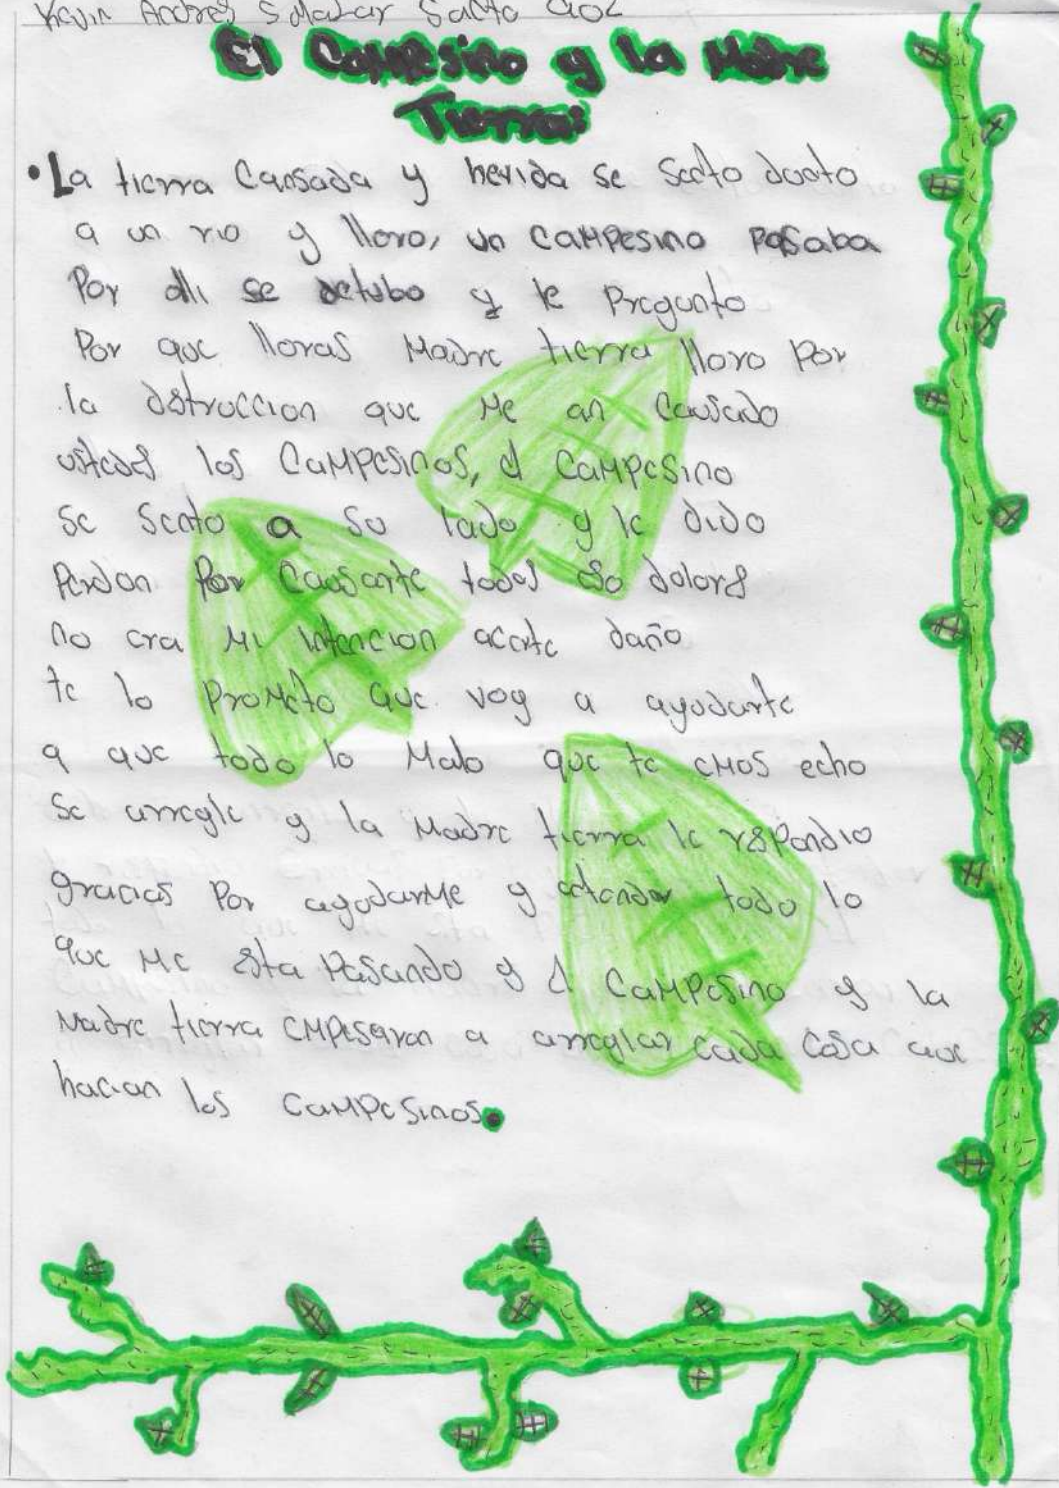 Kevin Andres Salazar
El Campesino y la Madre
Tierra:
• La tierra Cansada y herida se sento
a un rio y lloro, un campesino pasaba
Por alli se detubo y le Pregunto
Por que lloras Madre tierra lloro por
la dstruccion que Me an Causado
ustedes los CaMPesinos, el CaMPesino
se sento a su lado y le dido
Perdon Por Causarte todos so dolors
no era Mi intencion acerte daño
te lo ProMeto que voy a ayudarte
a que todo lo Malo que te eMos echo
se arregle y la Madre tierra le rspondio
gracias Por ayudarMe y entender todo lo
que Me sta Pasando y el CaMPesino y la
Madre tierra eMPesaron a arreglar cada Cosa que
hacian los CaMPesinos.